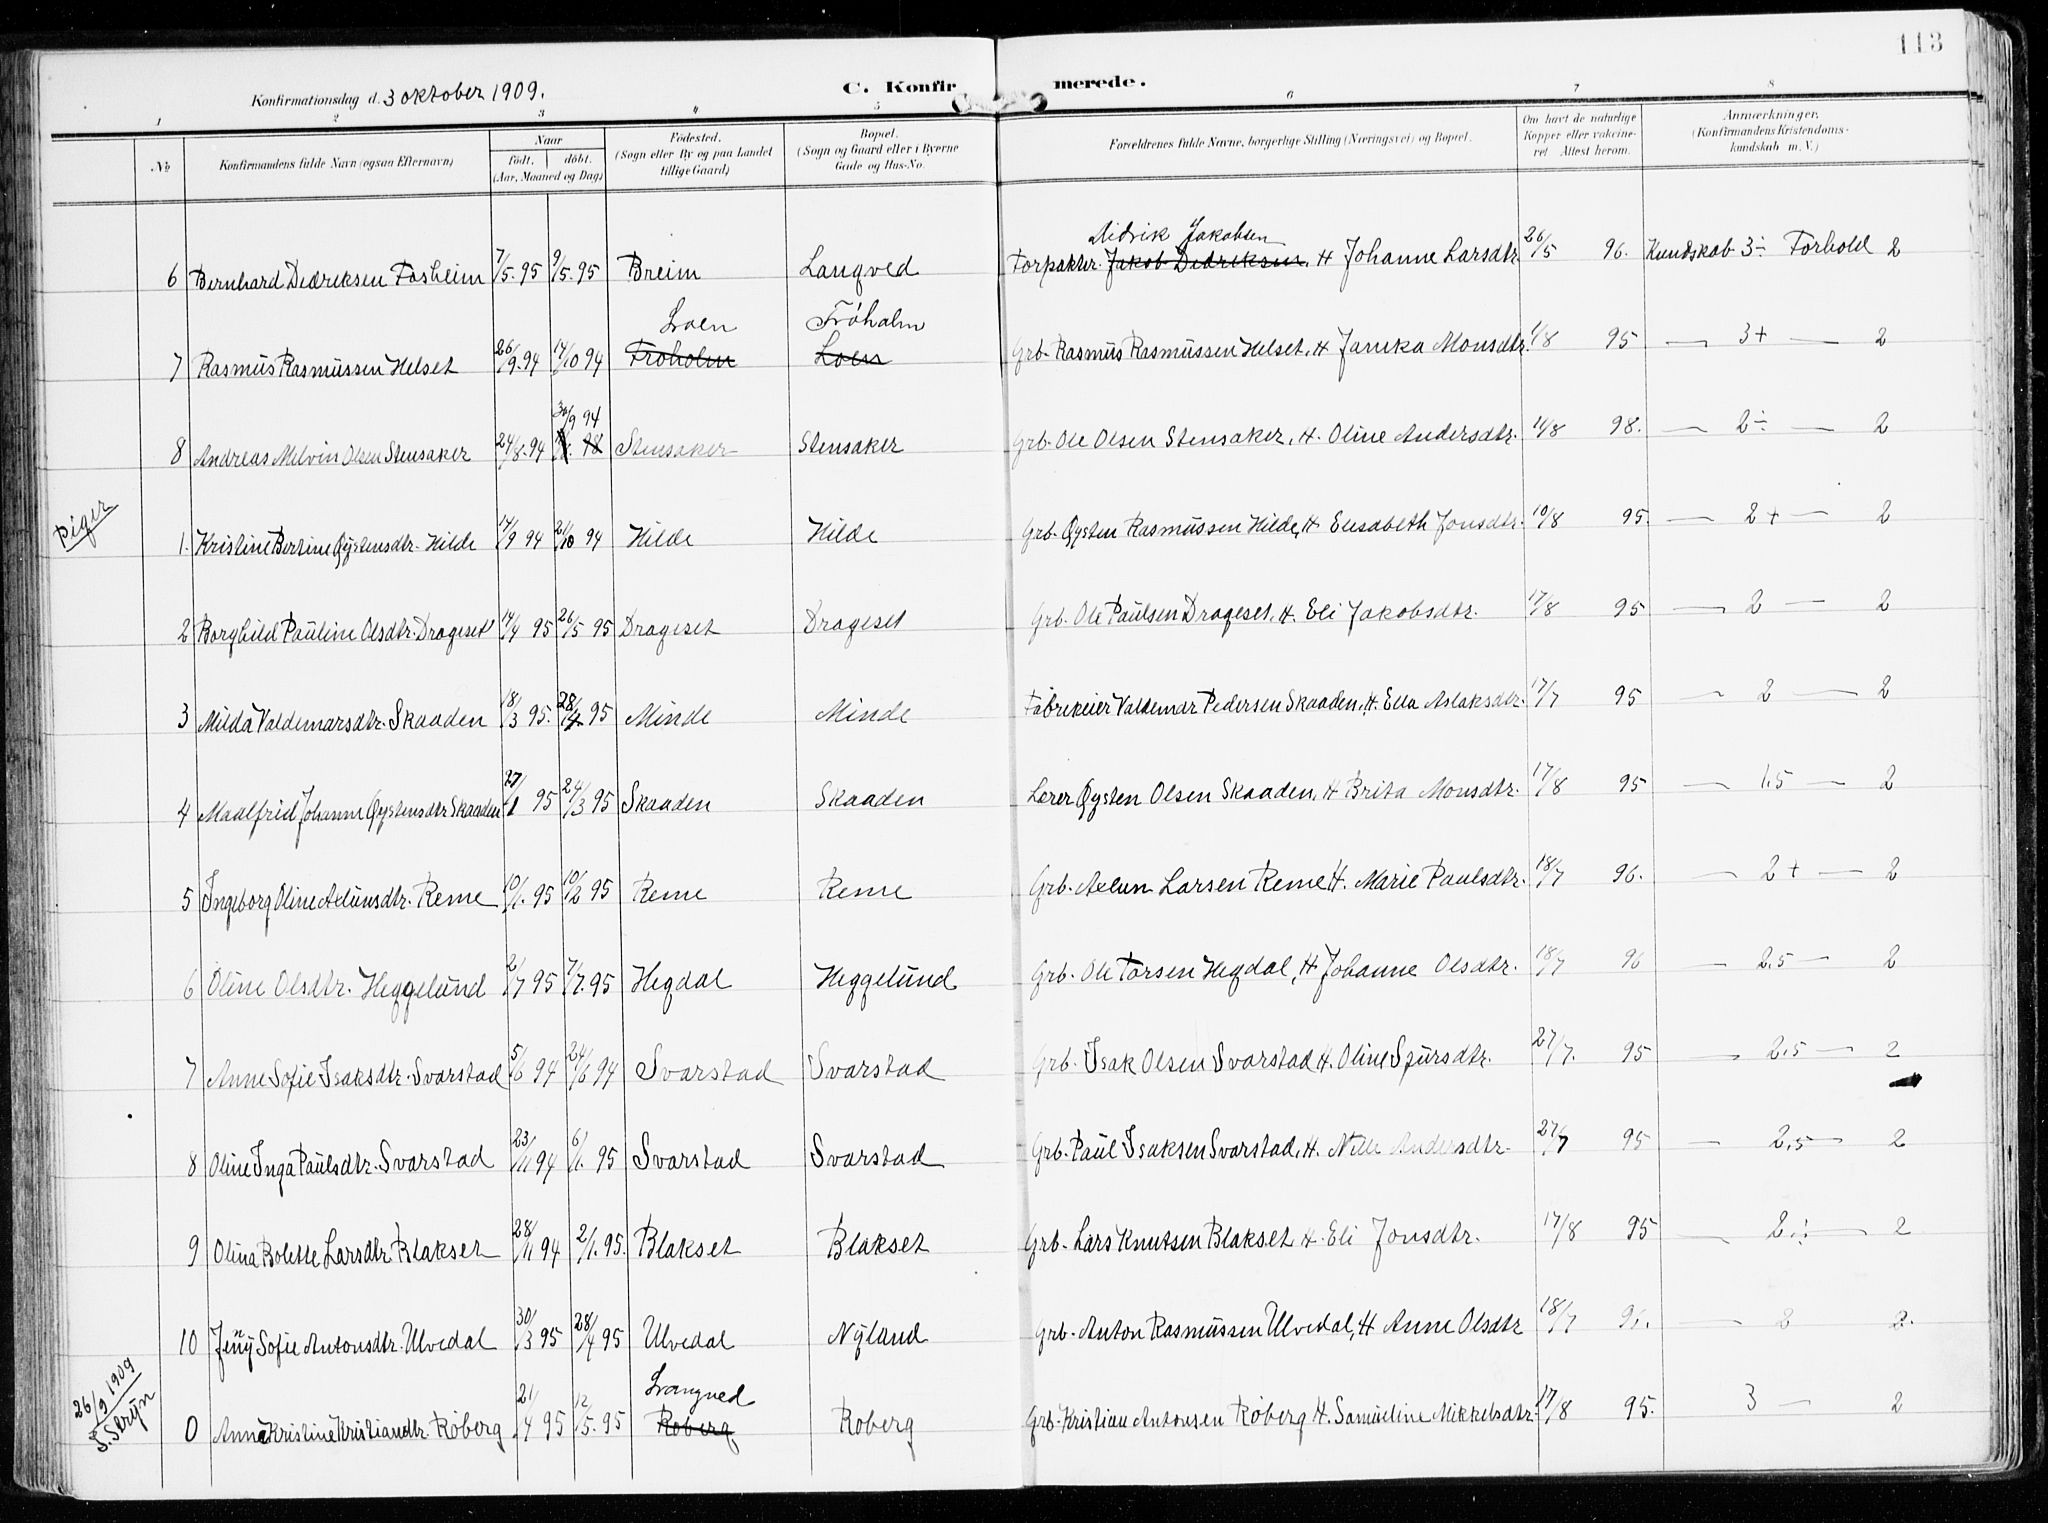 113
Konfirmationsdag d. 3 oktober 1909.
C. Konfirmerede.
1 2 3 4 5 6 7 8
No
Konfirmandens fulde Navn (ogsaa Efternavn)
Naar
født. døbt.
(Aar, Maaned og Dag)
Fødested.
(Sogn eller By og paa Landet
tillige Gaard)
Bopæl.
(Sogn og Gaard eller i Byerne
Gade og Hus-No.
Forældrenes fulde Navne, borgerlige Stilling (Næringsvei) og Bopæl.
Om havt de naturlige
Kopper eller vakcine-
ret Attest herom.
Anmærkninger.
(Konfirmandens Kristendoms-
kundskab m. V.)
Didrik Jakobsen
6 Bernhard Dedriksen Fosheim 7/5. 95 9/5. 95 Breim Langved Forpakter Jakob Dedriksen, H Johanne Larsdtr. 26/5 96. Kundskab 3÷ Forhold 2
Loen Frøholm
7 Rasmus Rasmussen Helset 26/9. 94 14/10 94 Froholm Loen Grb. Rasmus Rasmussen Helset, H Janika Monsdtr. 1/8 95 — 3+ — 2
30/9 94
8 Andreas Melvin Olsen Stensaker 24/8. 94 Stensaker Stensaker Grb. Ole Olsen Stensaker, H. Oline Andersdtr. 14/8 98. — 2÷ — 2
Piger
1. Kristine Bertine Øystensdtr. Hilde 14/9 94 21/10 94 Hilde Hilde Grb. Øysten Rasmussen Hilde, H Elisabeth Jonsdtr. 10/8 95. — 2+ — 2
2 Borghild Pauline Olsdtr. Drageset 14/4 95 26/5 95 Drageset Drageset Grb. Ole Paulsen Drageset, H. Eli Jakobsdtr. 17/8 95 — 2 — 2
3 Milda Valdemarsdtr. Skaaden 18/3 95. 28/4 95 Minde Minde Fabrikeier Valdemar Pedersen Skaaden, H. Ella Aslaksdtr. 17/7 95 — 2 — 2
4 Maalfrid Johanne Øystensdtr Skaaden 27/1 95 24/3 95 Skaaden Skaaden Lærer Øysten Olsen Skaaden, H Brita Monsdtr. 17/8 95 — 1.5 — 2
5 Ingeborg Oline Aelunsdtr. Reme 10/1. 95 10/2 95 Reme Reme Grb. Aelun Larsen Reme, H. Marie Paulsdtr. 18/7 96. — 2+ — 2
6 Oline Olsdtr. Heggelund 2/7 95 7/7. 95 Hegdal Heggelund Grb. Ole Torsen Hegdal, H Johanne Olsdtr. 18/7 96 — 2.5 — 2
7 Anne Sofie Isaksdtr. Svarstad 5/6 94 24/6 94 Svarstad Svarstad Grb. Isak Olsen Svarstad H. Oline Sjursdtr. 27/7. 95 — 2.5 — 2
8 Oline Inga Paulsdtr. Svarstad 23/11 94 6/1. 95 Svarstad Svarstad Grb. Paul Isaksen Svarstad, H. Nille Andersdtr. 27/7 95 — 2.5 — 2
9 Olina Bolette Larsdtr Blakset 28/11 94 2/1. 95. Blakset Blakset Grb. Lars Knutsen Blakset H. Eli Jonsdtr. 17/8 95 — 2÷ — 2
10 Jenny Sofie Antonsdtr. Ulvedal 30/3 95 28/4 95 Ulvedal Nylund Grb. Anton Rasmussen Ulvedal, H Anne Olsdtr 18/7 96. — 2 2.
Langved
26/9 1909
S. Stryn
0 Anna Kristine Kristiandtr. Roberg 21/4 95 12/5. 95 Roberg Roberg Grb. Kristian Antonsen Roberg H. Samueline Mikkelsdtr. 17/8 95. 3 — 2